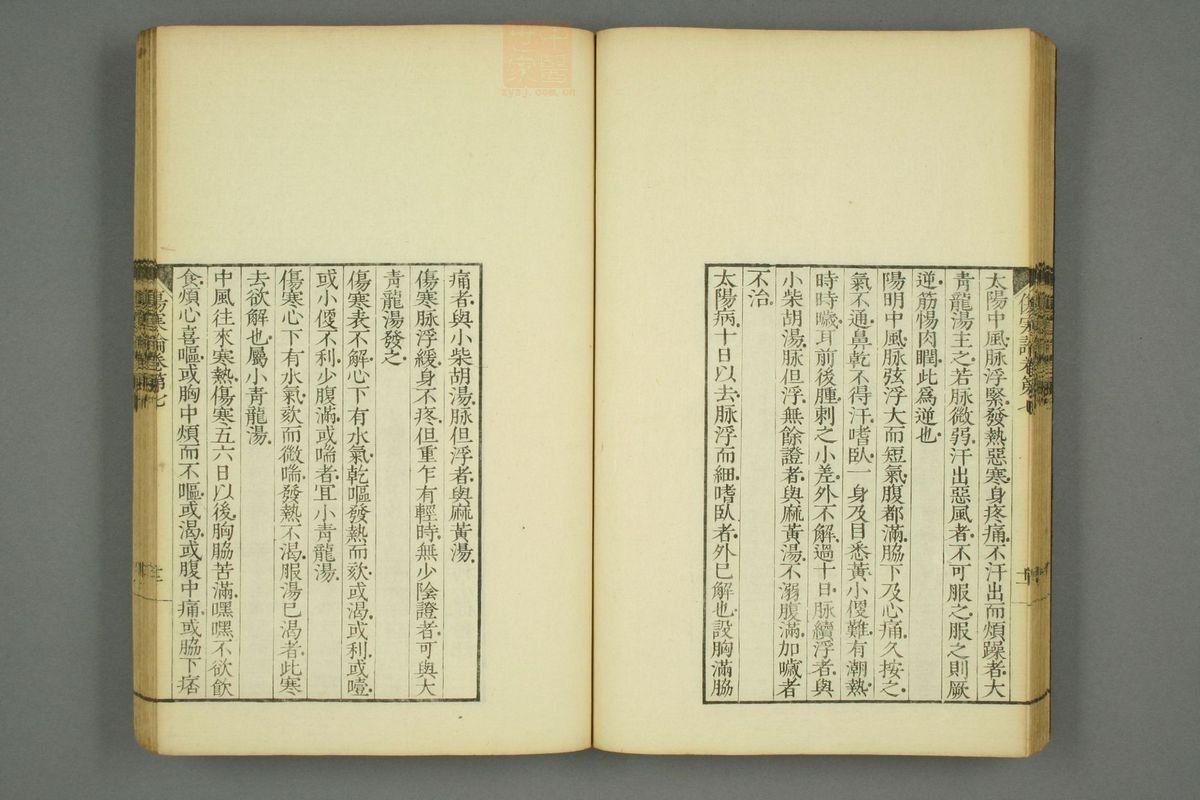 太陽中風脉浮緊發熱惡寒身疼痛不汗出而煩躁者大
靑龍湯主之若脉微弱汗出惡風者不可服之服之則厥
逆筋惕肉瞤此爲逆也
陽明中風脉弦浮大而短氣腹都滿脇下及心痛久按之
氣不通鼻乾不得汗嗜臥一身及目悉黃小便難有潮熱
時時噦耳前後腫刺之小差外不解過十日脉續浮者與
小柴胡湯脉但浮無餘證者與麻黃湯不溺腹滿加噦者
不治
太陽病十日以去脉浮而細嗜臥者外已解也設胸滿脇
痛者與小柴胡湯脉但浮者與麻黃湯
傷寒脉浮緩身不疼但重乍有輕時無少陰證者可與大
靑龍湯發之
傷寒表不解心下有水氣乾嘔發熱而欬或渴或利或噎
或小便不利少腹滿或喘者宜小靑龍湯
傷寒心下有水氣欬而微喘發熱不渴服湯已渴者此寒
去欲解也屬小靑龍湯
中風往來寒熱傷寒五六日以後胸脇苦滿嘿嘿不欲飮
食煩心喜嘔或胸中煩而不嘔或渴或腹中痛或脇下痞
傷寒論卷第七
中醫世家
zysj.com.cn